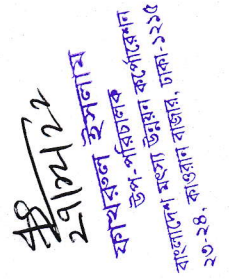 ২৭/১২/২২
কায়রুল ইসলাম
উপ-পরিচালক
বাংলাদেশ মৎস্য উন্নয়ন কর্পোরেশন
২৩-২৪, কাওরান বাজার, ঢাকা-১২১৫